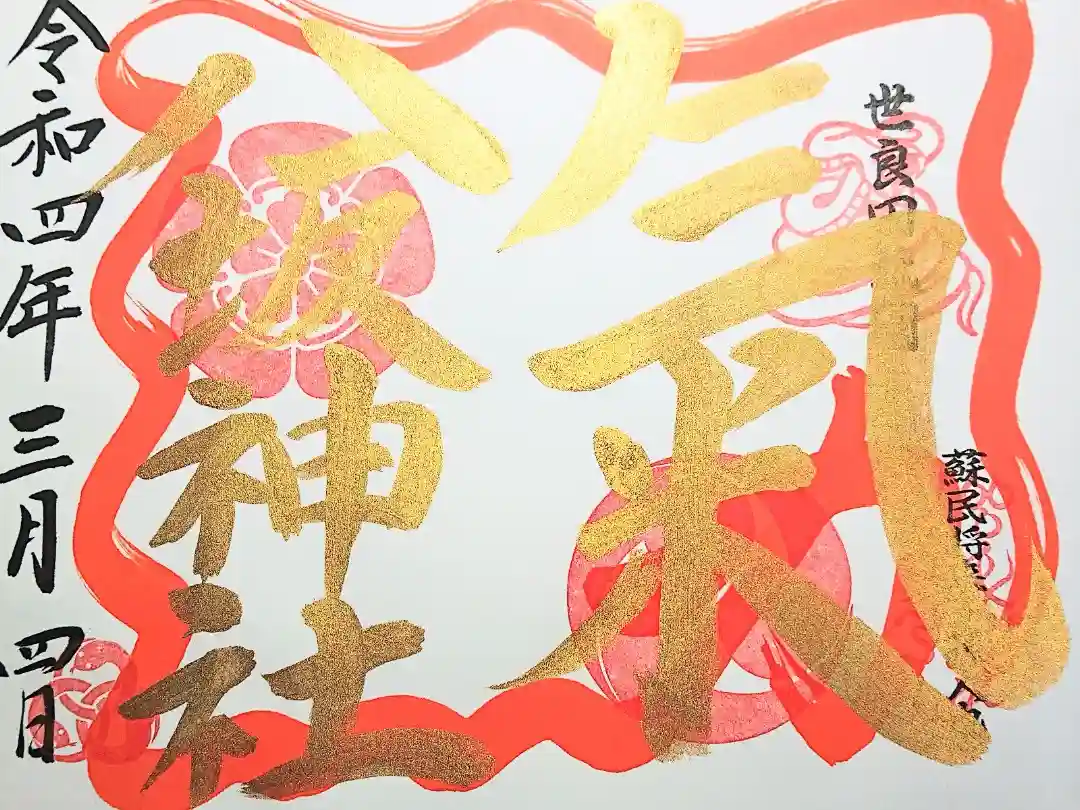 世良田
蘇民将
氣
八坂神社
令和四年三月四日